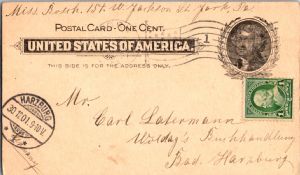 Miss Bosch, 157 W. Jackson St. York, Pa.
POSTAL CARD-ONE CENT.
UNITED STATES OF AMERICA.
THIS SIDE IS FOR THE ADDRESS ONLY.
1
HARZBURG
30.12.01. 9-10 V.
Mr.
Carl Latermann
Woldag's Buchhandlung
Bad Harzburg